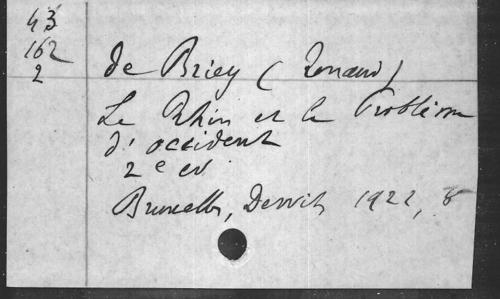 43
162
2
de Briey (Renaud)
Le Rhin et le Problème
d'occident
2e ed
Bruxelles, Dewit, 1922, 8